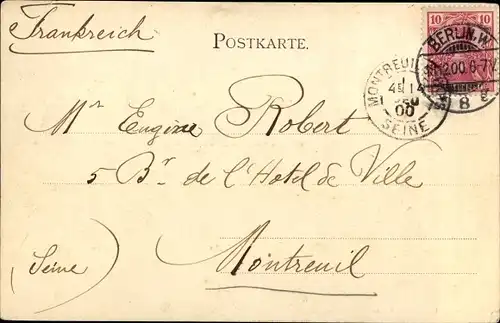 Frankreich
POSTKARTE.
10 10
BERLIN.W.
12.00.6-7V.
8
MONTREUIL
4E 14
00
SEINE
Mr Eugène Robert
5 Br de l'Hotel de Ville
Montreuil
(Seine)